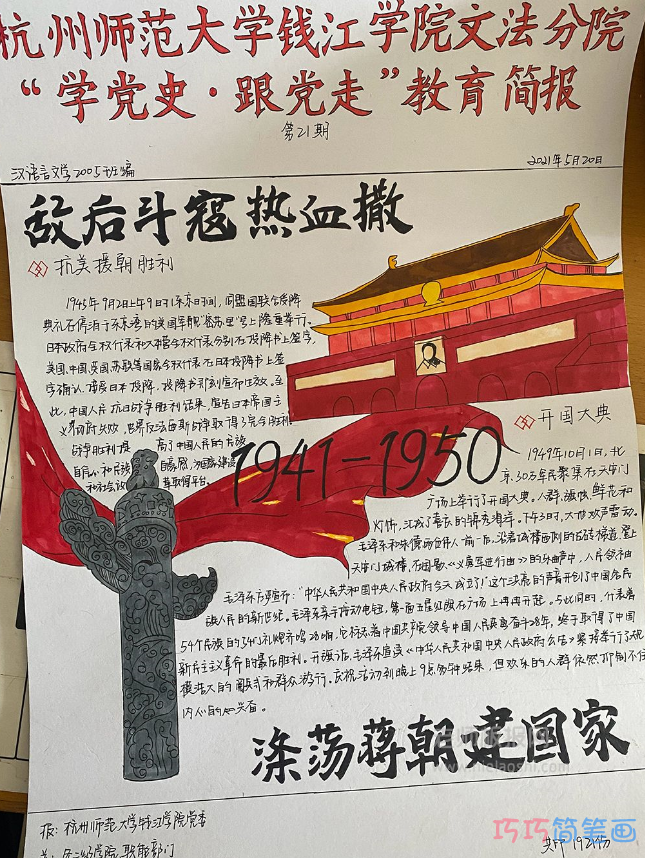 杭州师范大学钱江学院文法分院
“学党史·跟党走”教育简报
第21期
汉语言文学2005班编
2021年5月20日
敌后斗寇热血撒
抗美援朝胜利
1945年9月2日上午9时(东京时间),同盟国联合受降
典礼在停泊于东京湾的美国军舰“密苏里”号上隆重举行。
日本政府全权代表和大本营全权代表分别在投降书上签字,
美国、中国、英国、苏联等国家全权代表在日本投降书上签
字确认,接受日本投降,投降书即刻宣布生效。至
此,中国人民抗日战争胜利结束,宣告日本帝国主
义彻底失败,世界反法西斯战争取得了完全胜利。
战争胜利提
高了中国人民的民族
自尊心和民族
自豪感,为国家建设
和社会改
1941-1950
开国大典
1949年10月1日,北
京30万军民聚集在天安门
广场上举行了开国大典。人群、旗帜、鲜花和
灯饰,汇成了喜庆的锦秀海洋。下午3时,大地欢声雷动。
毛泽东和朱德两位伟人一前一后,沿着城楼西侧的古砖梯道,登上
天安门城楼,在国歌《义勇军进行曲》的乐曲声中,人民领袖
毛泽东庄严宣布:“中华人民共和国中央人民政府今天成立了!”这个洪亮的声音开创了中国各民
族人民的新世纪。毛泽东亲手按动电钮,第一面五星红旗在广场上冉冉升起。与此同时,代表着
54个民族的54门礼炮齐鸣28响,它标志着中国共产党领导中国人民英勇奋斗28年,终于取得了中国
新民主主义革命的最后胜利。升旗之后,毛泽东宣读《中华人民共和国中央人民政府公告》紧接着举行了规
模浩大的阅兵式和群众游行。庆祝活动到晚上9点多钟结束,但欢乐的人群依然抑制不住
内心的兴奋。
涤荡蒋朝建国家
报:杭州师范大学钱江学院党委
职能部门
共印192份
巧巧简笔画